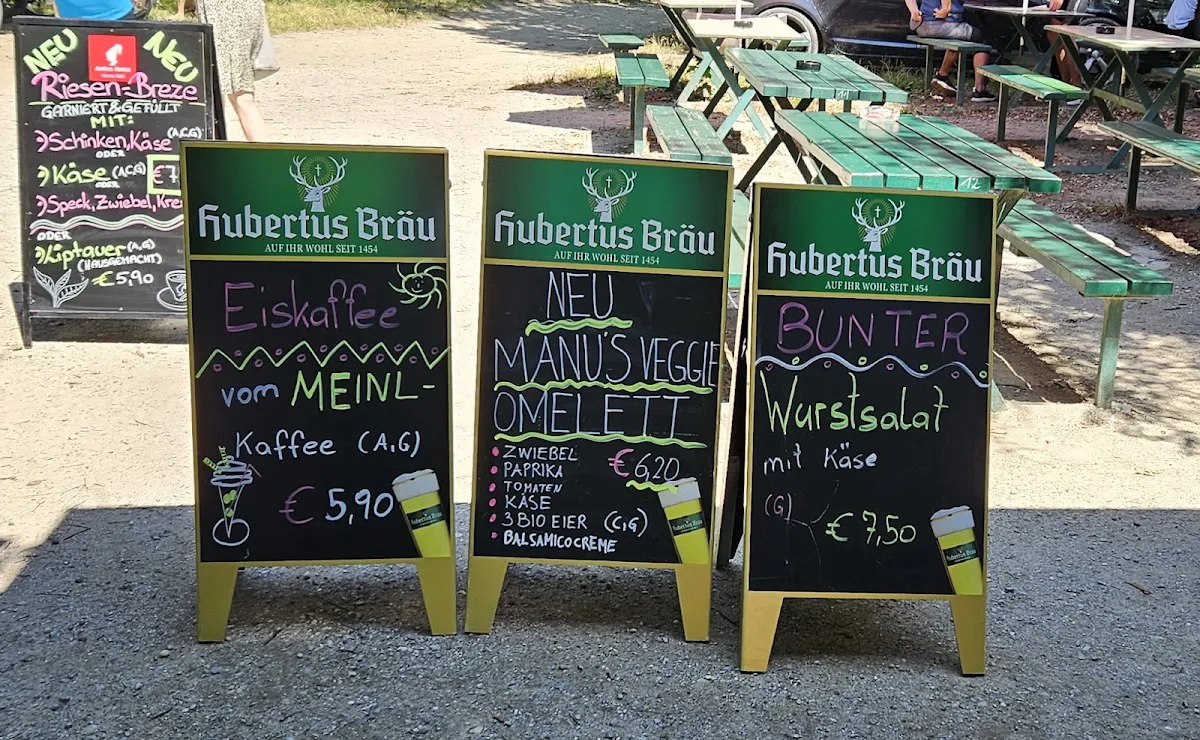 NEU
NEU
Riesen-Breze
GARNIERT & GEFÜLLT
MIT:
Schinken, Käse (A,C,G)
ODER
Käse (A,C,G)
ODER
€ 7
Speck, Zwiebel, Kren
ODER
Liptauer (A,G)
(HAUSGEMACHT)
€ 5,90
Hubertus Bräu
AUF IHR WOHL SEIT 1454
Eiskaffee
vom MEINL-
Kaffee (A,G)
€ 5,90
Hubertus Bräu
Hubertus Bräu
AUF IHR WOHL SEIT 1454
NEU
MANU'S VEGGIE
OMELETT
ZWIEBEL
PAPRIKA
€ 6,20
TOMATEN
KÄSE
3 BIO EIER (C,G)
BALSAMICOCREME
Hubertus Bräu
Hubertus Bräu
AUF IHR WOHL SEIT 1454
BUNTER
Wurstsalat
mit Käse
(G)
€ 7,50
Hubertus Bräu
11
12